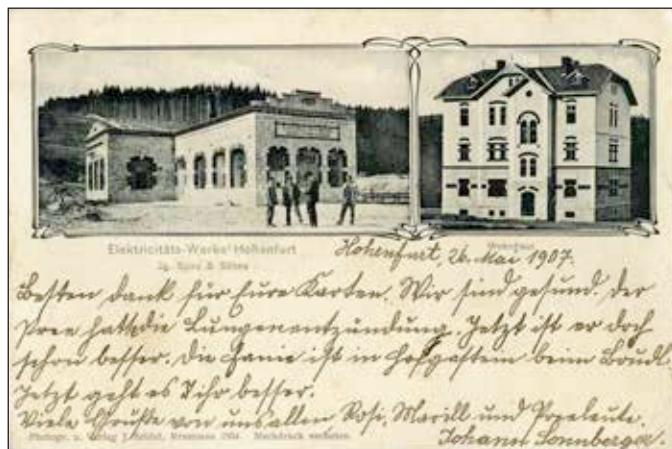 Elektricitäts-Werke Hohenfurt
Ig. Spiro & Söhne
Wohnhaus
Hohenfurt, 26. Mai 1907.
Besten dank für Eure Karten. Wir sind gesund. der
hatt die Lungenentzündung. Jetzt ist er doch
schon besser. die Fanie ist in Hofgastein beim
Jetzt geht es Ihr besser.
Viele Grüße von uns allen Rosi, Marill und
Johann Sonnberger.
Photogr. u. Verlag J. Seidel, Krummau 1904. Nachdruck verboten.